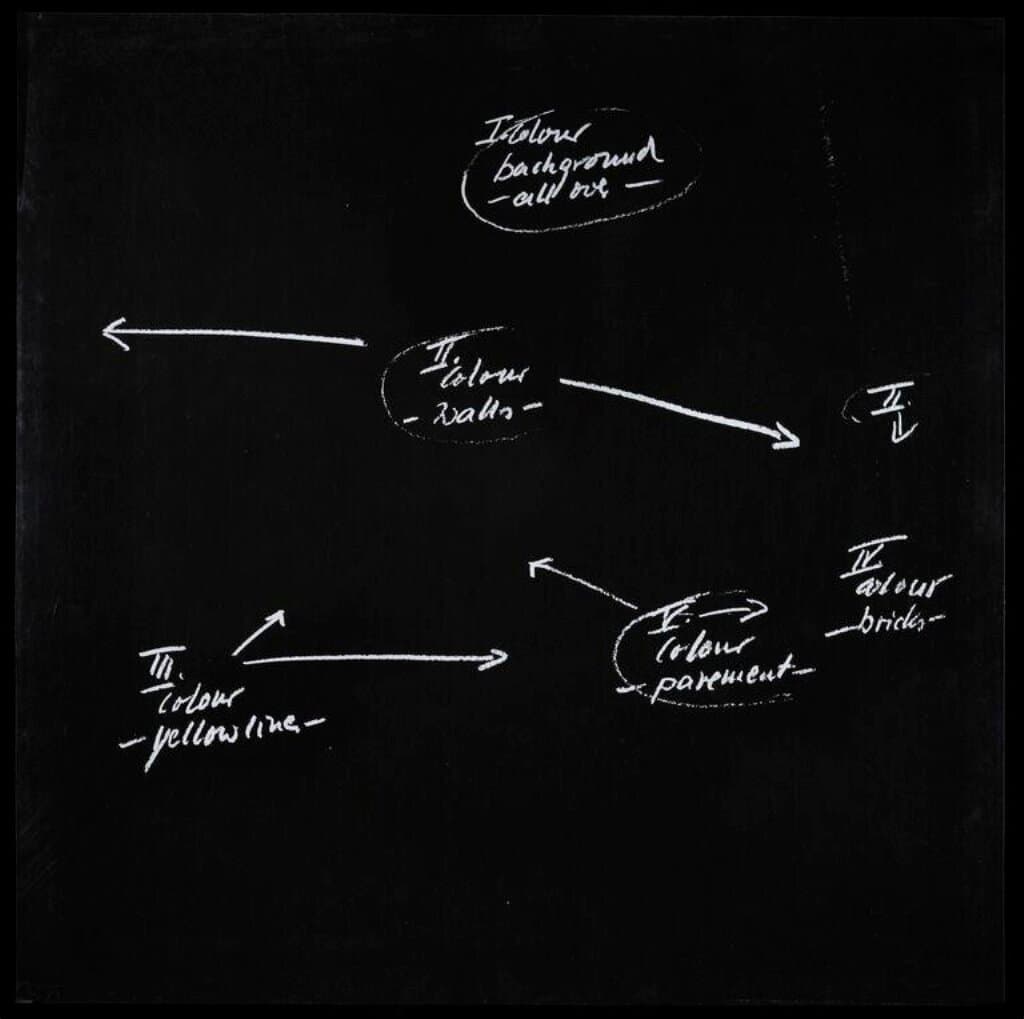 I. Colour
background
- all ove -
II.
Colour
- walls -
II.
IV
colour
- bricks -
V.
Colour
- pavement -
III.
Colour
- yellow line -